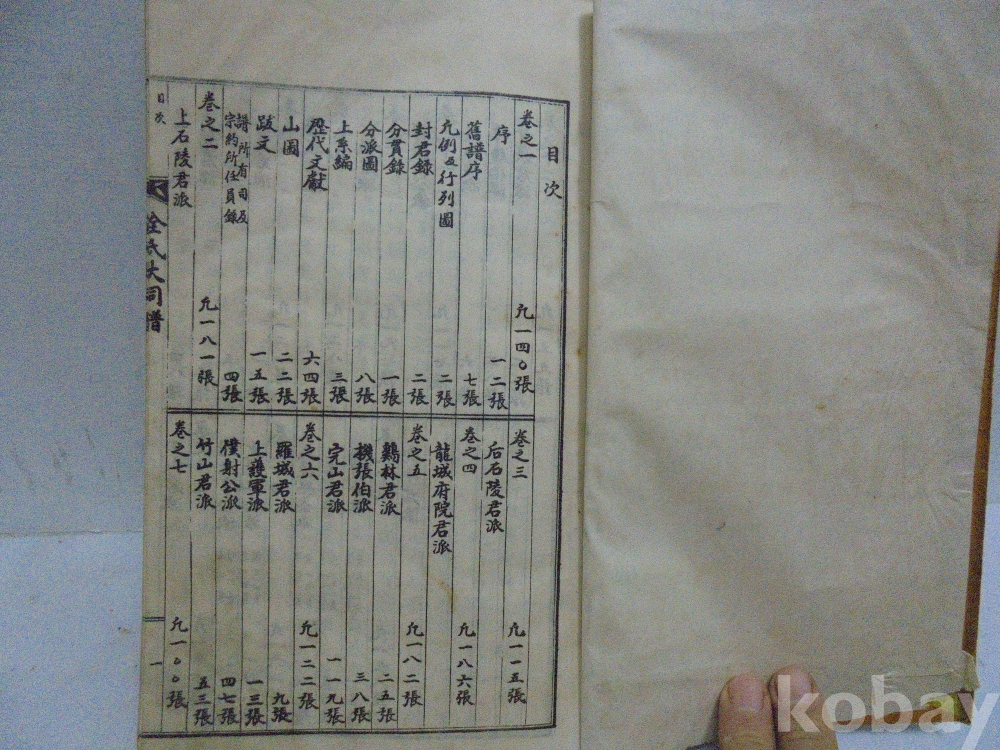 目次
卷之一 凡一四〇張
序 一二張
舊譜序 七張
凡例及行列圖 二張
封君錄 二張
分貫錄 一張
分派圖 八張
上系編 三張
歷代文獻 六四張
山圖 二二張
跋文 一五張
譜所有司及
宗約所任員錄 四張
卷之二 凡一八一張
上石陵君派
卷之三 凡一一五張
后石陵君派
卷之四 凡一八六張
龍城府院君派
卷之五 凡一八二張
鷄林君派 二五張
機張伯派 三八張
完山君派 一一九張
卷之六 凡一二二張
羅城君派 九張
上護軍派 一三張
僕射公派 四七張
竹山君派 五三張
卷之七 凡一〇〇張
目次
全氏大同譜
一
kobay